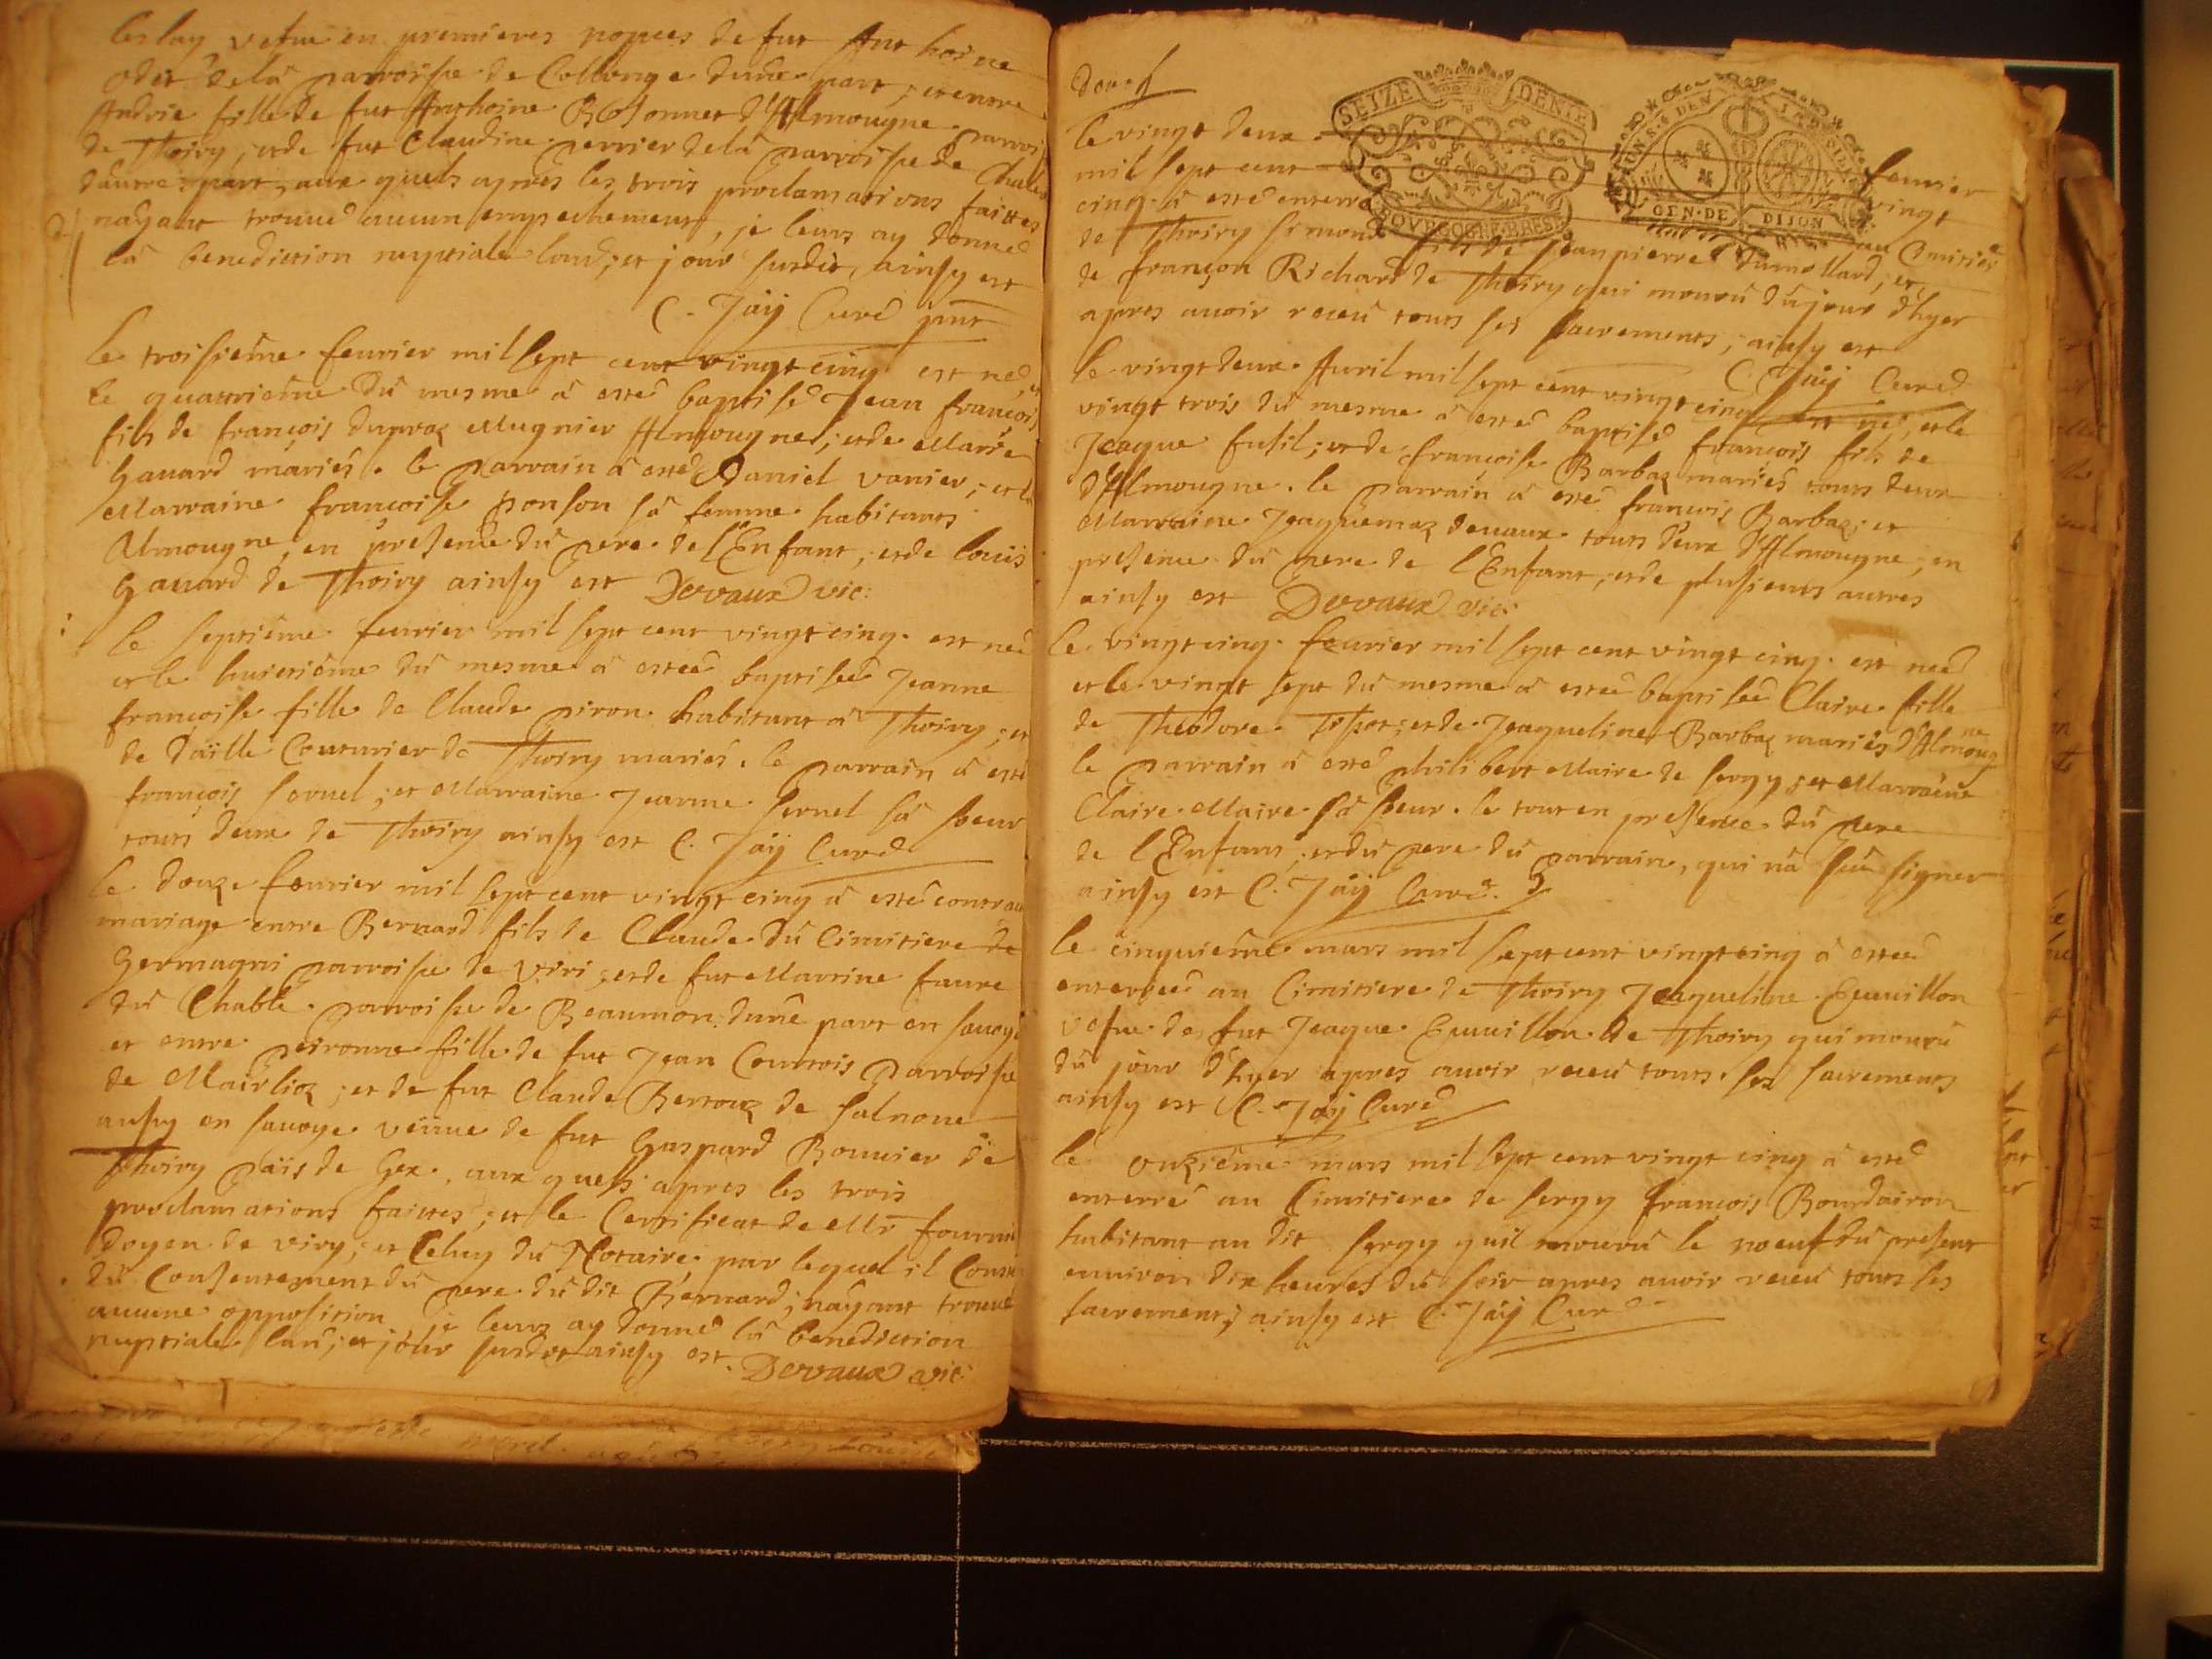 leslay vefue en premieres nopces de fut Anthoine
odet de la parroisse de Collonge dune part, et entre
Andrie fille de fut Anthoine Bosonnet d'Almougne parroisse
de Thoiry, et de fut Claudine perrier de la parroisse de
dautres part, aux quels apres les trois proclamations faittes
nayant trouué aucun empechement, je leurs ay donné
la benediction nuptiale land, et jour susdit, ainsy est
C. Jaÿ Curé
le troisieme feurier mil sept cent vingt cinq est né et
le quatrieme du mesme à esté baptisé Jean françois
fils de françois dupraz Mugnier Almougne, et de Marie
Gauard mariés. le parrain à esté Daniel vanier, et la
Marraine françoise ponson sa femme habitants
Almougne, en presence du pere de l'Enfant, et de louis
Gauard de Thoiry ainsy est Devaux vic:
le septiéme feurier mil sept cent vingt cinq est née
et le huictiéme du mesme à estée baptisée Jeanne
françoise fille de Claude piron habitant à Thoiry, et
de Couturier de Thoiry mariés. le parrain à esté
françois seruel, et Marraine Jeanne seruel sa soeur
touts deux de Thoiry ainsy est C. Jaÿ Curé
le douze feurier mil sept cent vingt cinq à esté contracté
mariage entre Bernard fils de Claude du Cimitiere de
Germagni parroisse de Viri, et de fut Martine faure
du Chable parroisse de Beaumon dune part en sauoye
et entre peironne fille de fut Jean Courtois parroisse
de Mairlioz, et de fut Claude Bertouz de salnoue
ausy en sauoye veüue de fut Gaspard Bouuier de
Thoiry païs de Gex, aux quels apres les trois
proclamations faittes, et le Certificat de Mr fournier
doyen de viry, et Celuy du Notaire par lequel il Conste
du Consentement du pere du dit Bernard, nayant trouué
aucune opposition, je leurs ay donné la benediction
nuptiale land, et jour susdit ainsy est. Devaux vic:
SEIZE DENIE
BOVRGOGNE BRESE
GEN. DE DIJON
le vingt deux feurier
mil sept cent vingt
cinq à esté enterré au Cimitiere
de Thoiry simond fils de Jeanpierre dumollard, et
de françon Richard de Thoiry qui mouru du jour d'hyer
apres auoir receu touts ses sacrements, ainsy est
C. Jaÿ Curé
le vingt deux Auril mil sept cent vingt cinq est né, et le
vingt trois du mesme à esté baptisé françois fils de
Jeaque fusil, et de françoise Barbaz mariés touts deux
d'Almougne. le parrain à esté françois Barbaz, et
Marraine Jeaquemaz deuaux touts deux d'Almougne, en
presence du pere de l'Enfant, et de plusieurs autres
ainsy est Devaux vic:
le vingt cinq feurier mil sept cent vingt cinq est née
et le vingt sept du mesme à estée baptisée Claire fille
de Theodore Tissot, et de Jeaqueline Barbaz mariés d'Almougne
le parrain à esté philibert Maire de sergy, et Marraine
Claire Maire sa soeur. le tout en presence du pere
de l'Enfant, et du pere du parrain, qui na sçu signer
ainsy est C. Jaÿ Curé.
le cinquiéme mars mil sept cent vingt cinq à estée
enterrée au Cimitiere de Thoiry Jeaqueline Euuillon
vefue de fut Jeaque Euuillon de Thoiry qui mouru
du jour d'hyer apres auoir receu touts ses sacrements
ainsy est C. Jaÿ Curé
le onziéme mars mil sept cent vingt cinq à esté
enterré au Cimitiere de sergy françois Bourdairon
habitant au dit sergy quil mouru le noeuf du present
enuiron dix heures du soir apres auoir receu touts ses
sacrements, ainsy est C. Jaÿ Curé